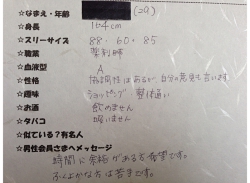 ☆なまえ・年齢 (29)
☆身長 164cm
☆スリーサイズ 88・60・85
☆職業 薬剤師
☆血液型 A
☆性格 協調性はあるが自分の意見も言います
☆趣味 ショッピング 整体通い
☆お酒 飲めません
☆タバコ 吸いません
☆似ている?有名人
☆男性会員さまへメッセージ
時間に余裕がある方希望です。
ふくよかな方は苦手です。